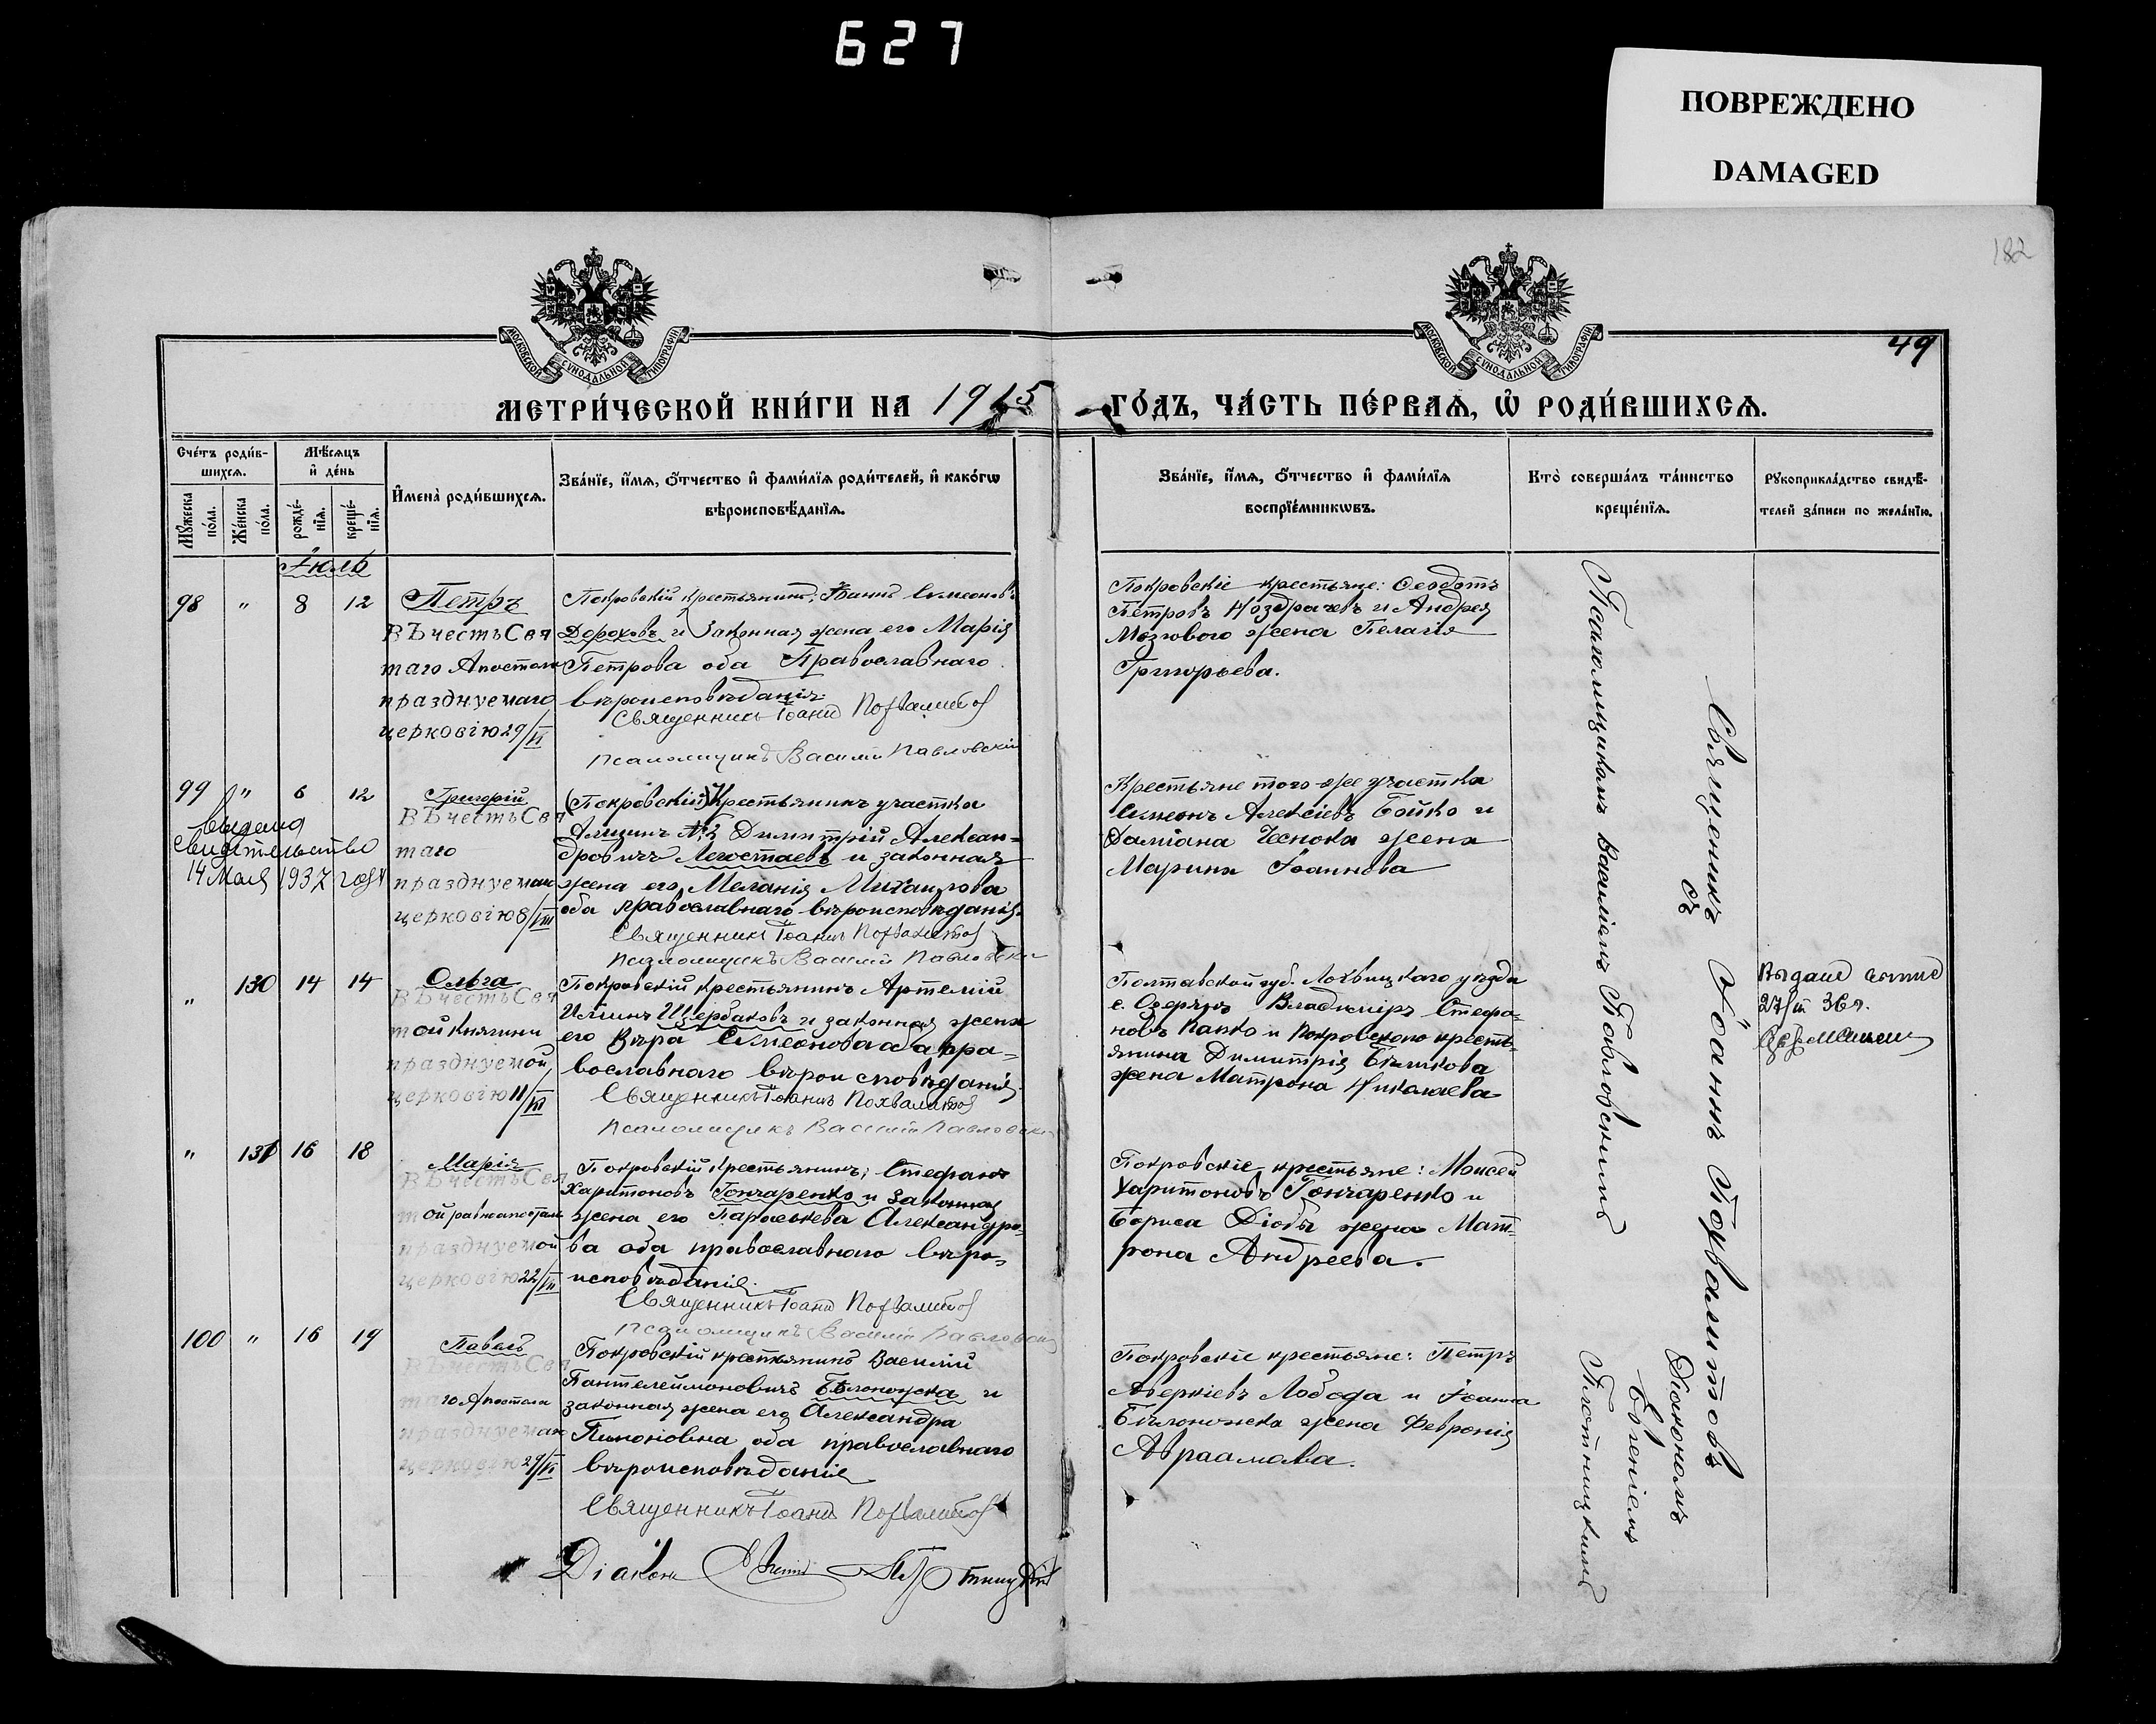 627
ПОВРЕЖДЕНО
DAMAGED
182
49
МОСКОВСКОЙ СУНОДАЛЬНОЙ ТИПОГРАФІИ
МОСКОВСКОЙ СУНОДАЛЬНОЙ ТИПОГРАФІИ
МЕТРИ́ЧЕСКОЙ КНИ́ГИ НА 1915 ГО́ДЪ, ЧА́СТЬ ПЕ́РВАѦ, Ѡ҆ РОДИ́ВШИХСѦ.
Сче́тъ роди́в-
шихсѧ.
Мꙋ́жеска по́ла.
Же́нска по́ла.
Мѣ́сѧцъ
и҆ де́нь
рожде́-
нїѧ.
креще́-
нїѧ.
И҆мена̀ роди́вшихсѧ.
Зва́нїе, и҆́мѧ, ѻ҆́тчество и҆ фами́лїѧ роди́телей, и҆ како́гѡ
вѣроисповѣ́данїѧ.
Зва́нїе, и҆́мѧ, ѻ҆́тчество и҆ фами́лїѧ
воспрїе́мникѡвъ.
Кто̀ соверша́лъ та́инство
креще́нїѧ.
Рꙋкоприкла́дство свидѣ́-
телей за́писи по жела́нїю.
Іюль
98 " 8 12
Петръ
ВЪ честь Свя
таго Апостола
празднуемаго
церковію 29/VI
Покровскій крестьянинъ, Іоаннъ Симеоновъ
Дороховъ и законная жена его Марія
Петрова оба Православнаго
вѣроисповѣданія.
Священникъ Іоаннъ Похвалитовъ
Псаломщикъ Василій Павловскій
Покровскіе крестьяне: Феодотъ
Петровъ Ноздрачевъ и Андрея
Мозгового жена Пелагія
Григорьева.
99 " 6 12
Выдано
свидетельство
14 Мая 1937 года
Григорій
ВЪ честь Свя
таго
празднуемаго
церковію 8/VIII
(Покровскій) Крестьянинъ участка
№2 Димитрій Алексан-
дровичъ Легостаевъ и законная
жена его Меланія Михаилова
оба православнаго вѣроисповѣданія.
Священникъ Іоаннъ Похвалитовъ
Псаломщикъ Василій Павловскій
Крестьяне того-же участка
Симеонъ Алексіевъ Бойко и
Даміана Чеснока жена
Марина Іоаннова
" 130 14 14
Ольга
ВЪ честь Свя
той Княгини
празднуемой
церковію 11/VII
Покровскій Крестьянинъ Артемій
Ильинъ Щербаковъ и законная жена
его Вѣра Симеонова оба пра-
вославнаго вѣроисповѣданія.
Священникъ Іоаннъ Похвалитовъ
Псаломщикъ Василій Павловскій
Полтавской губ. Лохвицкаго уѣзда
с. Озерянъ Владиміръ Стефа-
новъ Панко и Покровскаго кресть-
янина Димитрія Бѣликова
жена Матрона Николаева
" 131 16 18
Марія
ВЪ честь Свя
той равноапостол
празднуемой
церковію 22/VII
Покровскій Крестьянинъ, Стефанъ
Харитоновъ Гончаренко и Законная
жена его Параскева Александро-
ва оба православнаго вѣро-
исповѣданія.
Священникъ Іоаннъ Похвалитовъ
Псаломщикъ Василій Павловскій
Покровскіе крестьяне: Моисей
Харитоновъ Гончаренко и
Бориса жена Мат-
рона Андреева.
100 " 16 19
Павелъ
ВЪ честь Свя
таго Апостола
празднуемаго
церковію 29/VI
Покровскій крестьянинъ Василій
Пантелеймоновичъ Бѣлоножка и
законная жена его Александра
оба православнаго
вѣроисповѣданія
Священникъ Іоаннъ Похвалитовъ
Діаконъ Евгеній Плотницкій
Покровскіе крестьяне: Петръ
Аверкіевъ Лобода и Іоанна
Бѣлоножка жена Февронія
Авраамова.
Священникъ Іоаннъ Похвалитовъ
съ
Псаломщикомъ Василіемъ Павловскимъ
Діакономъ
Евгеніемъ
Плотницкимъ
27/III 36 г.